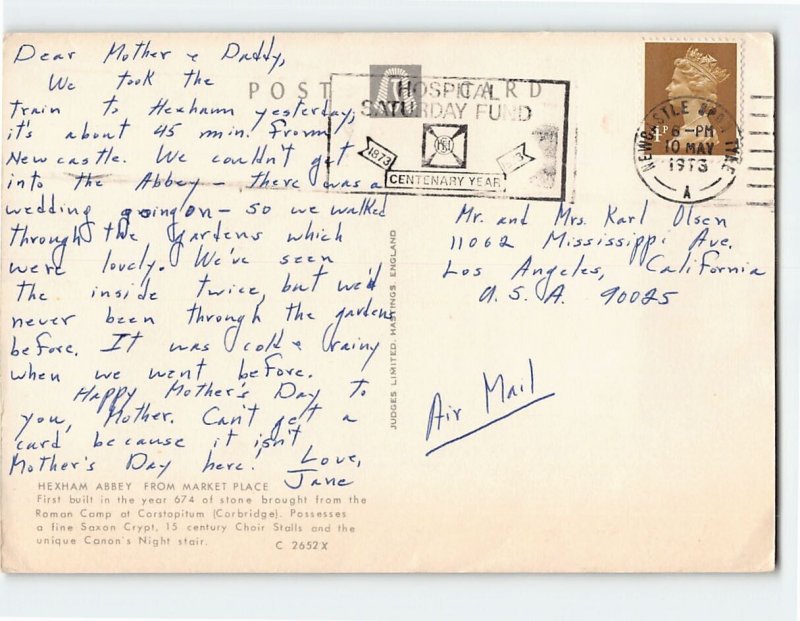 Dear Mother & Daddy,
We took the
train to Hexham yesterday,
it's about 45 min. from
Newcastle. We couldn't get
into the Abbey - there was a
wedding going on - so we walked
through the gardens which
were lovely. We've seen
the inside twice, but we'd
never been through the gardens
before. It was cold & rainy
when we went before.
Happy Mother's Day to
you, Mother. Can't get a
card because it isn't
Mother's Day here. Love,
Jane
HEXHAM ABBEY FROM MARKET PLACE
First built in the year 674 of stone brought from the
Roman Camp at Corstopitum (Corbridge). Possesses
a fine Saxon Crypt, 15 century Choir Stalls and the
unique Canon's Night stair.
C 2652X
POST CARD
HOSPITAL
SATURDAY FUND
1873
CENTENARY YEAR
NEWCASTLE UPON TYNE
6-PM
10 MAY
1973
A
JUDGES LIMITED, HASTINGS, ENGLAND
Mr. and Mrs. Karl Olsen
11062 Mississippi Ave.
Los Angeles, California
U.S.A. 90025
Air Mail